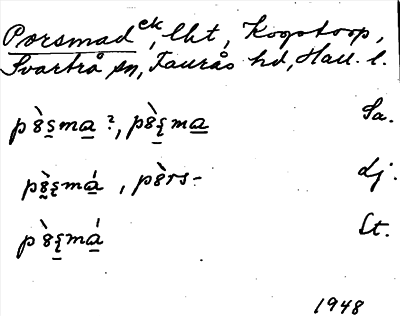 Porsmad ek, lht, Kogstorp,
Svartrå sn, Faurås hd, Hall. l.
pò̀s̱ma̱ ?, pò̀ş̱ma̱ Sa.
pò̱şmá̱, pòrs- dj.
pòş̱má̱ St.
1948